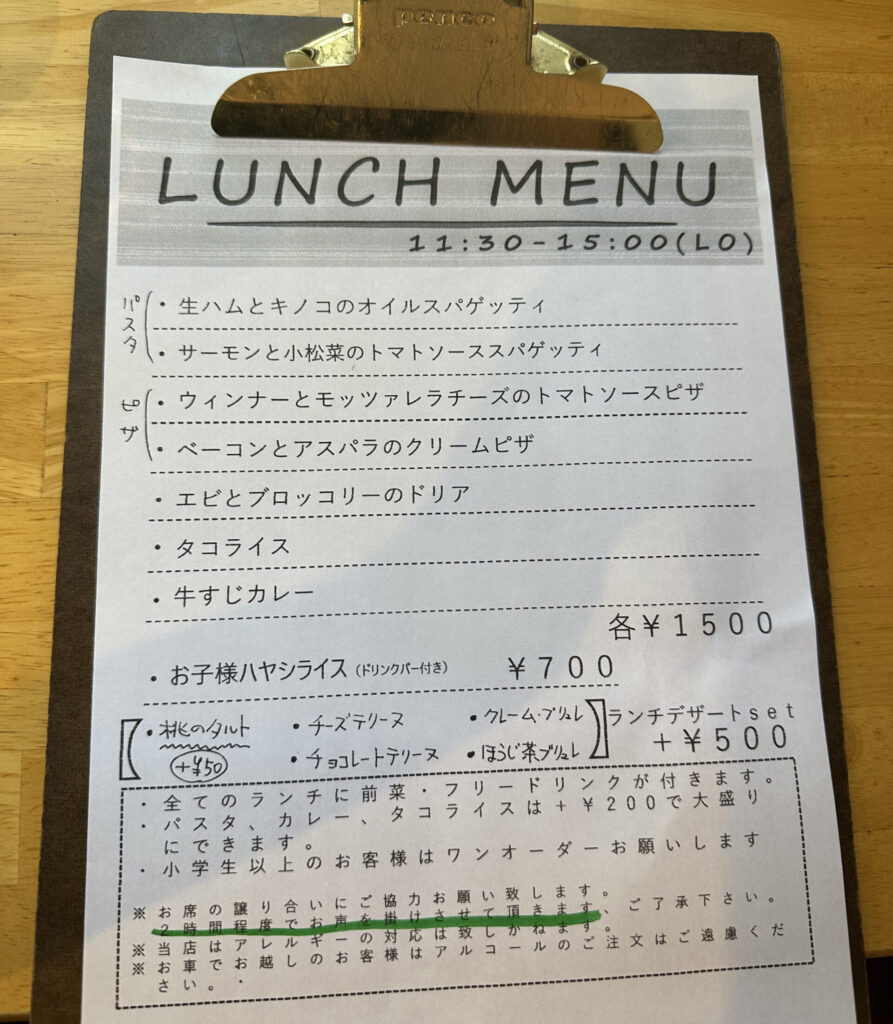 penco
LUNCH MENU
11:30-15:00(LO)
パスタ
・生ハムとキノコのオイルスパゲッティ
・サーモンと小松菜のトマトソーススパゲッティ
ピザ
・ウィンナーとモッツァレラチーズのトマトソースピザ
・ベーコンとアスパラのクリームピザ
・エビとブロッコリーのドリア
・タコライス
・牛すじカレー
各¥1500
・お子様ハヤシライス(ドリンクバー付き) ¥700
・桃のタルト ・チーズテリーヌ ・クレーム・ブリュレ
+¥50 ・チョコレートテリーヌ ・ほうじ茶ブリュレ
ランチデザートset
+¥500
・全てのランチに前菜・フリードリンクが付きます。
・パスタ、カレー、タコライスは+¥200で大盛り
にできます。
・小学生以上のお客様はワンオーダーお願いします
※お席の譲り合いにご協力お願い致します。
2時間程度でお声を掛けさせて頂きます、ご了承下さい。
※当店はアレルギーの対応は致しかねます。
※お車でお越しのお客様はアルコールのご注文はご遠慮くだ
さい。・